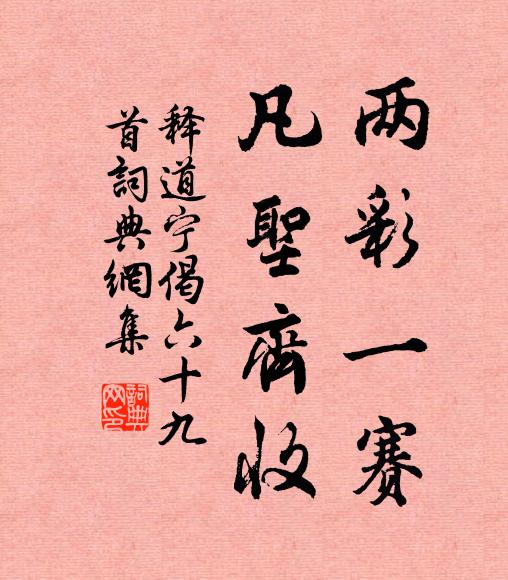 两彩一赛
凡聖齊收
释道宁偈六十九
首詞典網集
詞典
网印